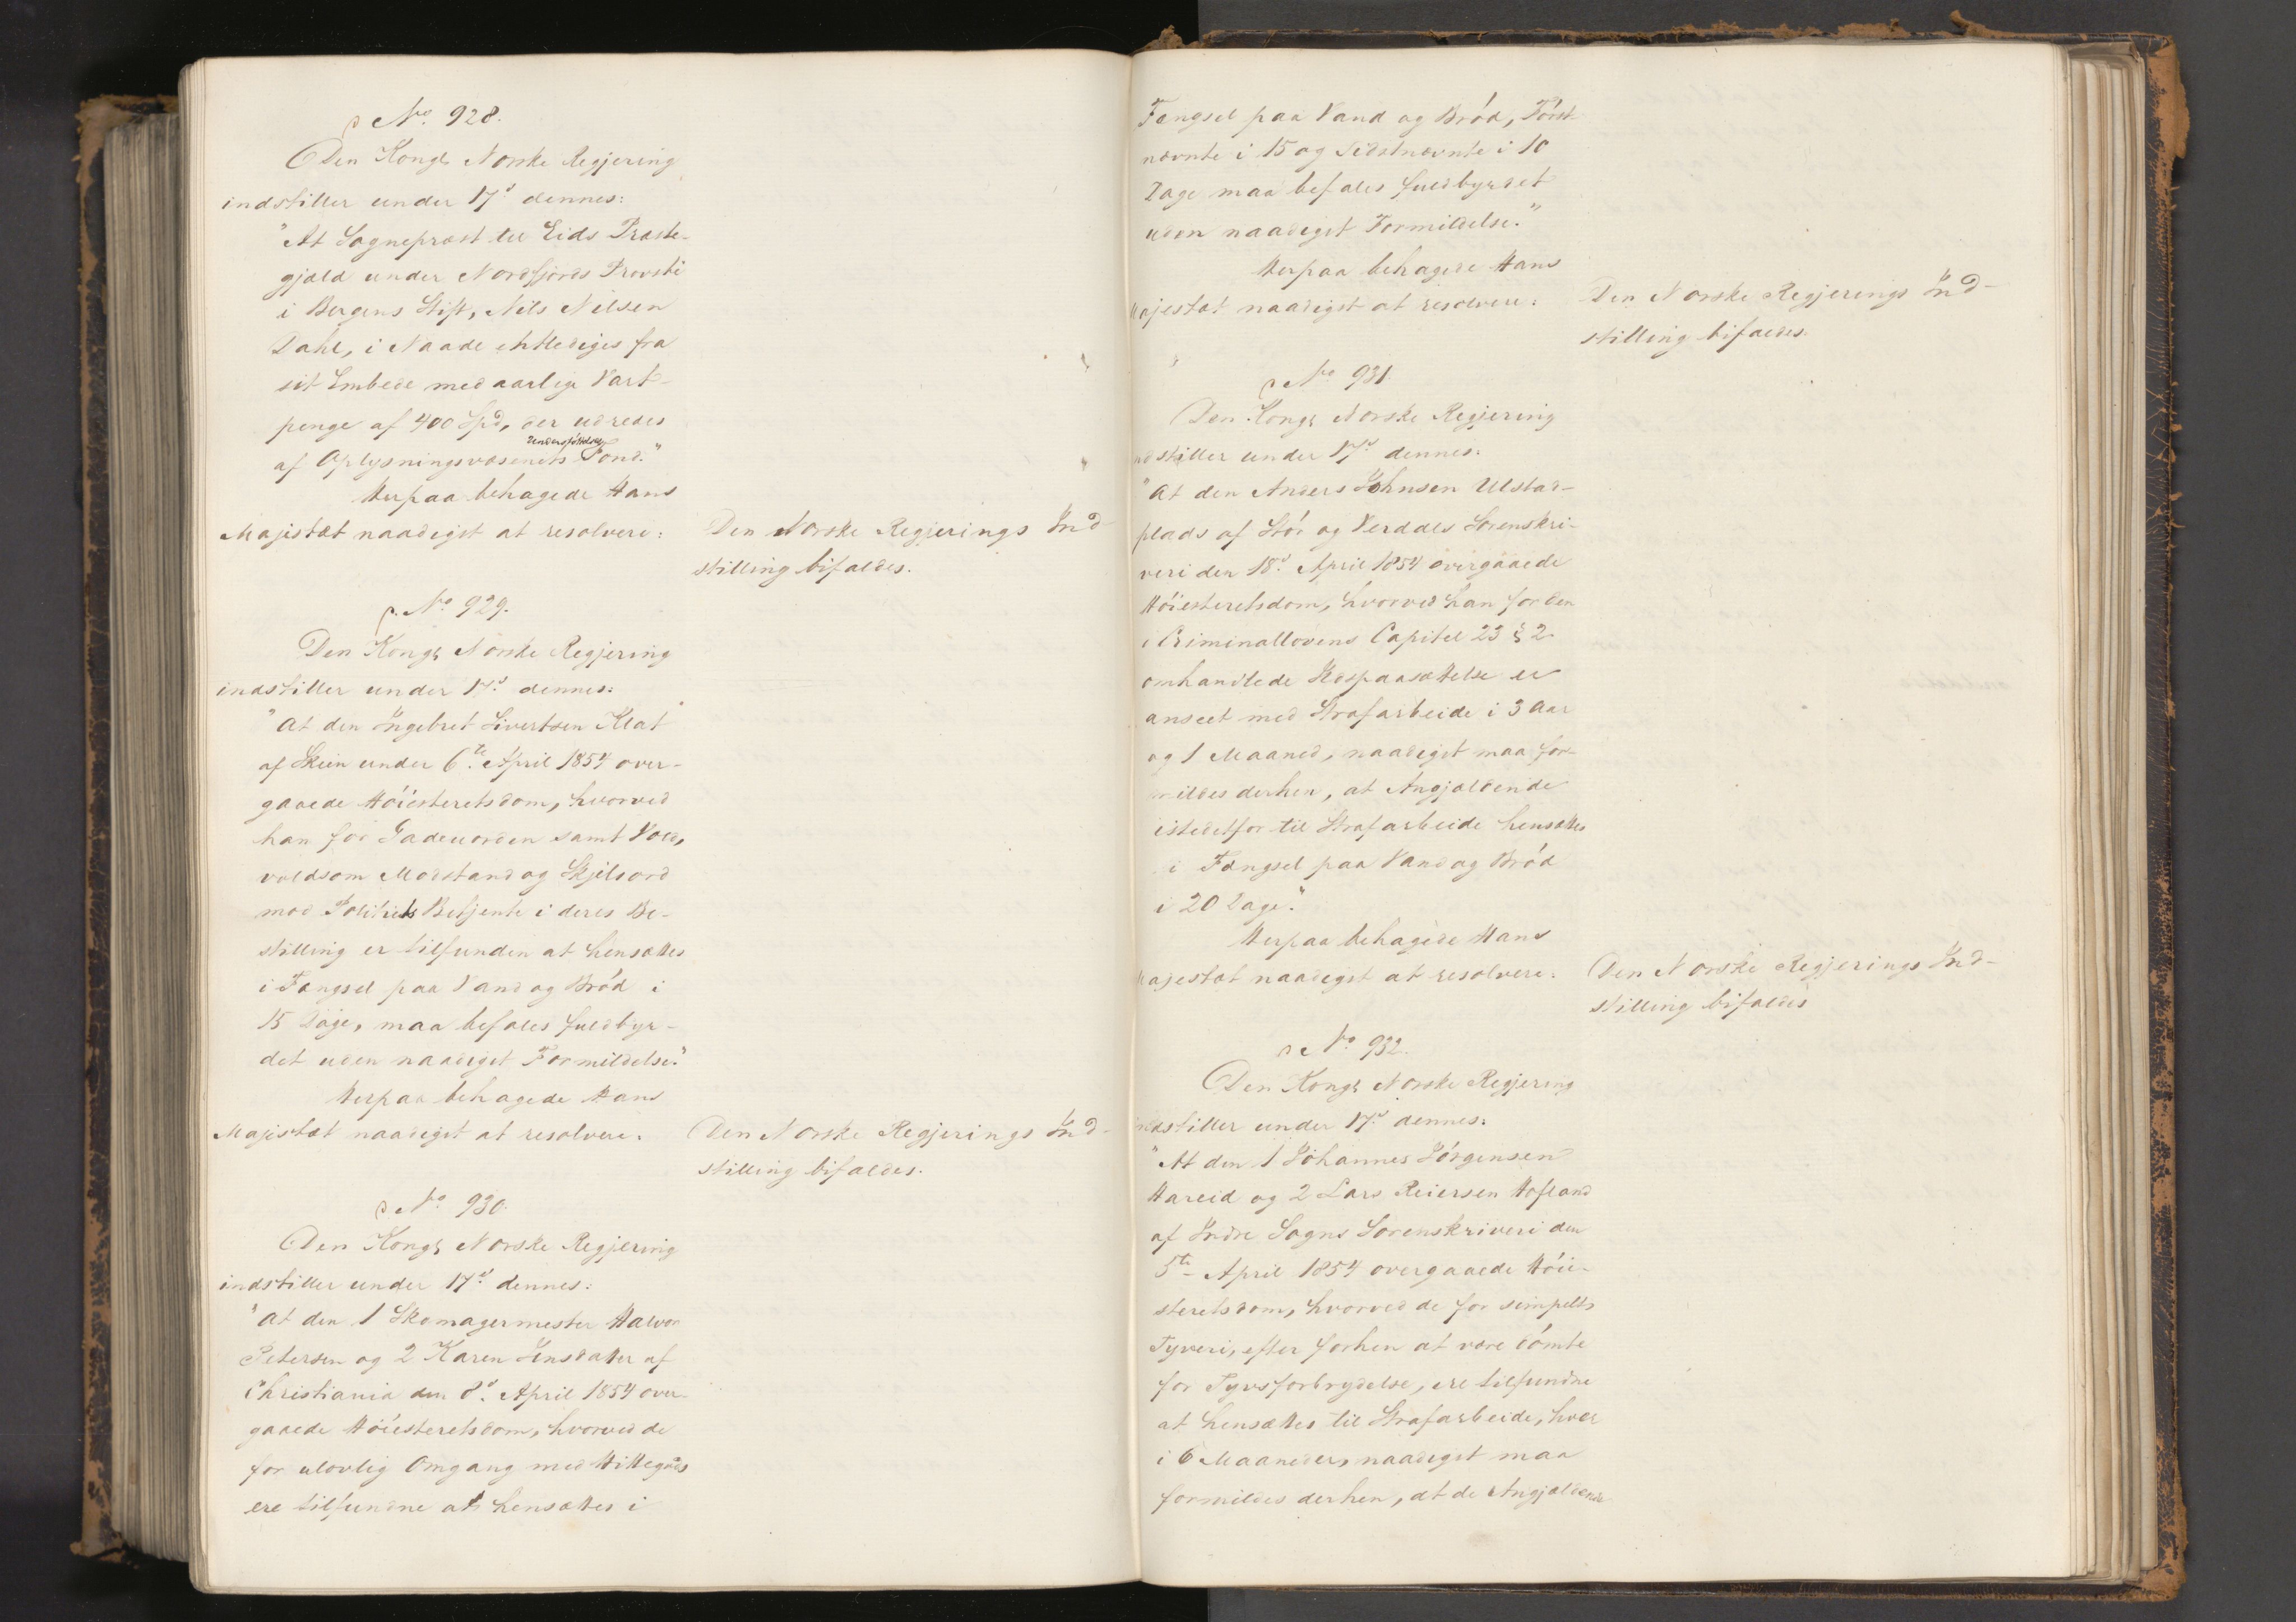 No. 928.
Den Kongl Norske Regjering
indstiller under 17d dennes:
"At Sognepræst til Eids Præste-
gjæld under Nordfjords Provsti
i Bergens Stift, Nils Nilsen
Dahl, i Naade entlediges fra
sit Embede med aarlige Vart-
penge af 400 Spd, der udredes
af Oplysningsvæsenets Understøttelses Fond."
Herpaa behagede Hans
Majestæt naadigst at resolvere:
Den Norske Regjerings Ind-
stilling bifaldes.
No. 929.
Den Kongl Norske Regjering
indstiller under 17d dennes:
"at den Ingebret Sivertsen Klat
af Skien under 6te April 1854 over-
gaaede Høiesteretsdom, hvorved
han for Gadeuorden samt Vold,
voldsom Modstand og Skjelsord
mod Politiets Betjente i deres Be-
stilling er tilfunden at hensættes
i Fængsel paa Vand og Brød i
15 Dage, maa befales fuldbyr-
det uden naadigst Formildelse."
Herpaa behagede Hans
Majestæt naadigst at resolvere:
Den Norske Regjerings Ind-
stilling bifaldes.
No. 930.
Den Kongl Norske Regjering
indstiller under 17d dennes:
"at den 1 Skomagermester Halvor
Petersen og 2 Karen Jensdatter af
Christiania den 8d April 1854 over-
gaaede Høiesteretsdom, hvorved de
for ulovlig Omgang med Hittegods
ere tilfundne at hensættes i
Fængsel paa Vand og Brød, Først-
nævnte i 15 og Sidstnævnte i 10
Dage maa befales fuldbyrdet
uden naadigst Formildelse."
Herpaa behagede Hans
Majestæt naadigst at resolvere:
Den Norske Regjerings Ind-
stilling bifaldes.
No 931.
Den Kongl Norske Regjering
indstiller under 17d dennes:
"at den Anders Johnsen Ulstad-
plads af Stør og Verdals Sorenskri-
veri den 18d April 1854 overgaaede
Høiesteretsdom, hvorved han for den
i Criminallovens Capitel 23 § 2
omhandlede Ildspaasættelse er
anseet med Strafarbeide i 3 Aar
og 1 Maaned, naadigst maa for-
mildes derhen, at Angjældende
istedetfor til Strafarbeide hensættes
i Fængsel paa Vand og Brød
i 20 Dage."
Herpaa behagede Hans
Majestæt naadigst at resolvere:
Den Norske Regjerings Ind-
stilling bifaldes
No 932.
Den Kongl Norske Regjering
indstiller under 17d dennes:
"At den 1 Johannes Jørgensen
Hareid og 2 Lars Reiersen Hofland
af Indre Sogns Sorenskriveri den
5te April 1854 overgaaede Høie-
steretsdom, hvorved de for simpelt
Tyveri, efter forhen at være dømte
for Tyvsforbrydelse, ere tilfundne
at hensættes til Strafarbeide, hver
i 6 Maaneder, naadigst maa
formildes derhen, at de Angjældende